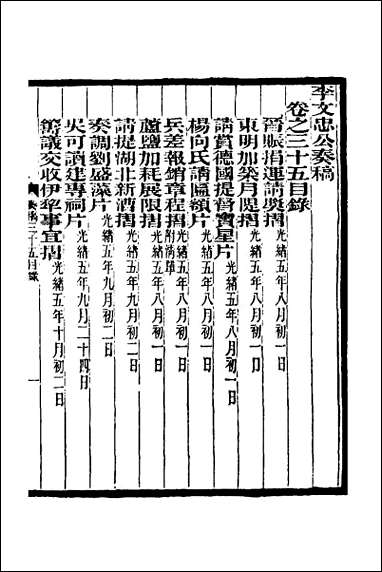 李文忠公奏稿
卷之三十五目錄
晉賑捐運請獎摺光緒五年八月初一日
東明加築月隄摺光緒五年八月初一日
請賞德國提督寶星片光緒五年八月初一日
楊向氏請匾額片光緒五年八月初一日
兵差報銷章程摺附清單光緒五年八月初一日
蘆鹽加耗展限摺光緒五年九月初二日
請提湖北新漕摺光緒五年九月初二日
奏調劉盛藻片光緒五年九月初二日
吳可讀建專祠片光緒五年九月二十四日
籌議交收伊犂事宜摺光緒五年十月初二日
奏稿三十五目錄
一